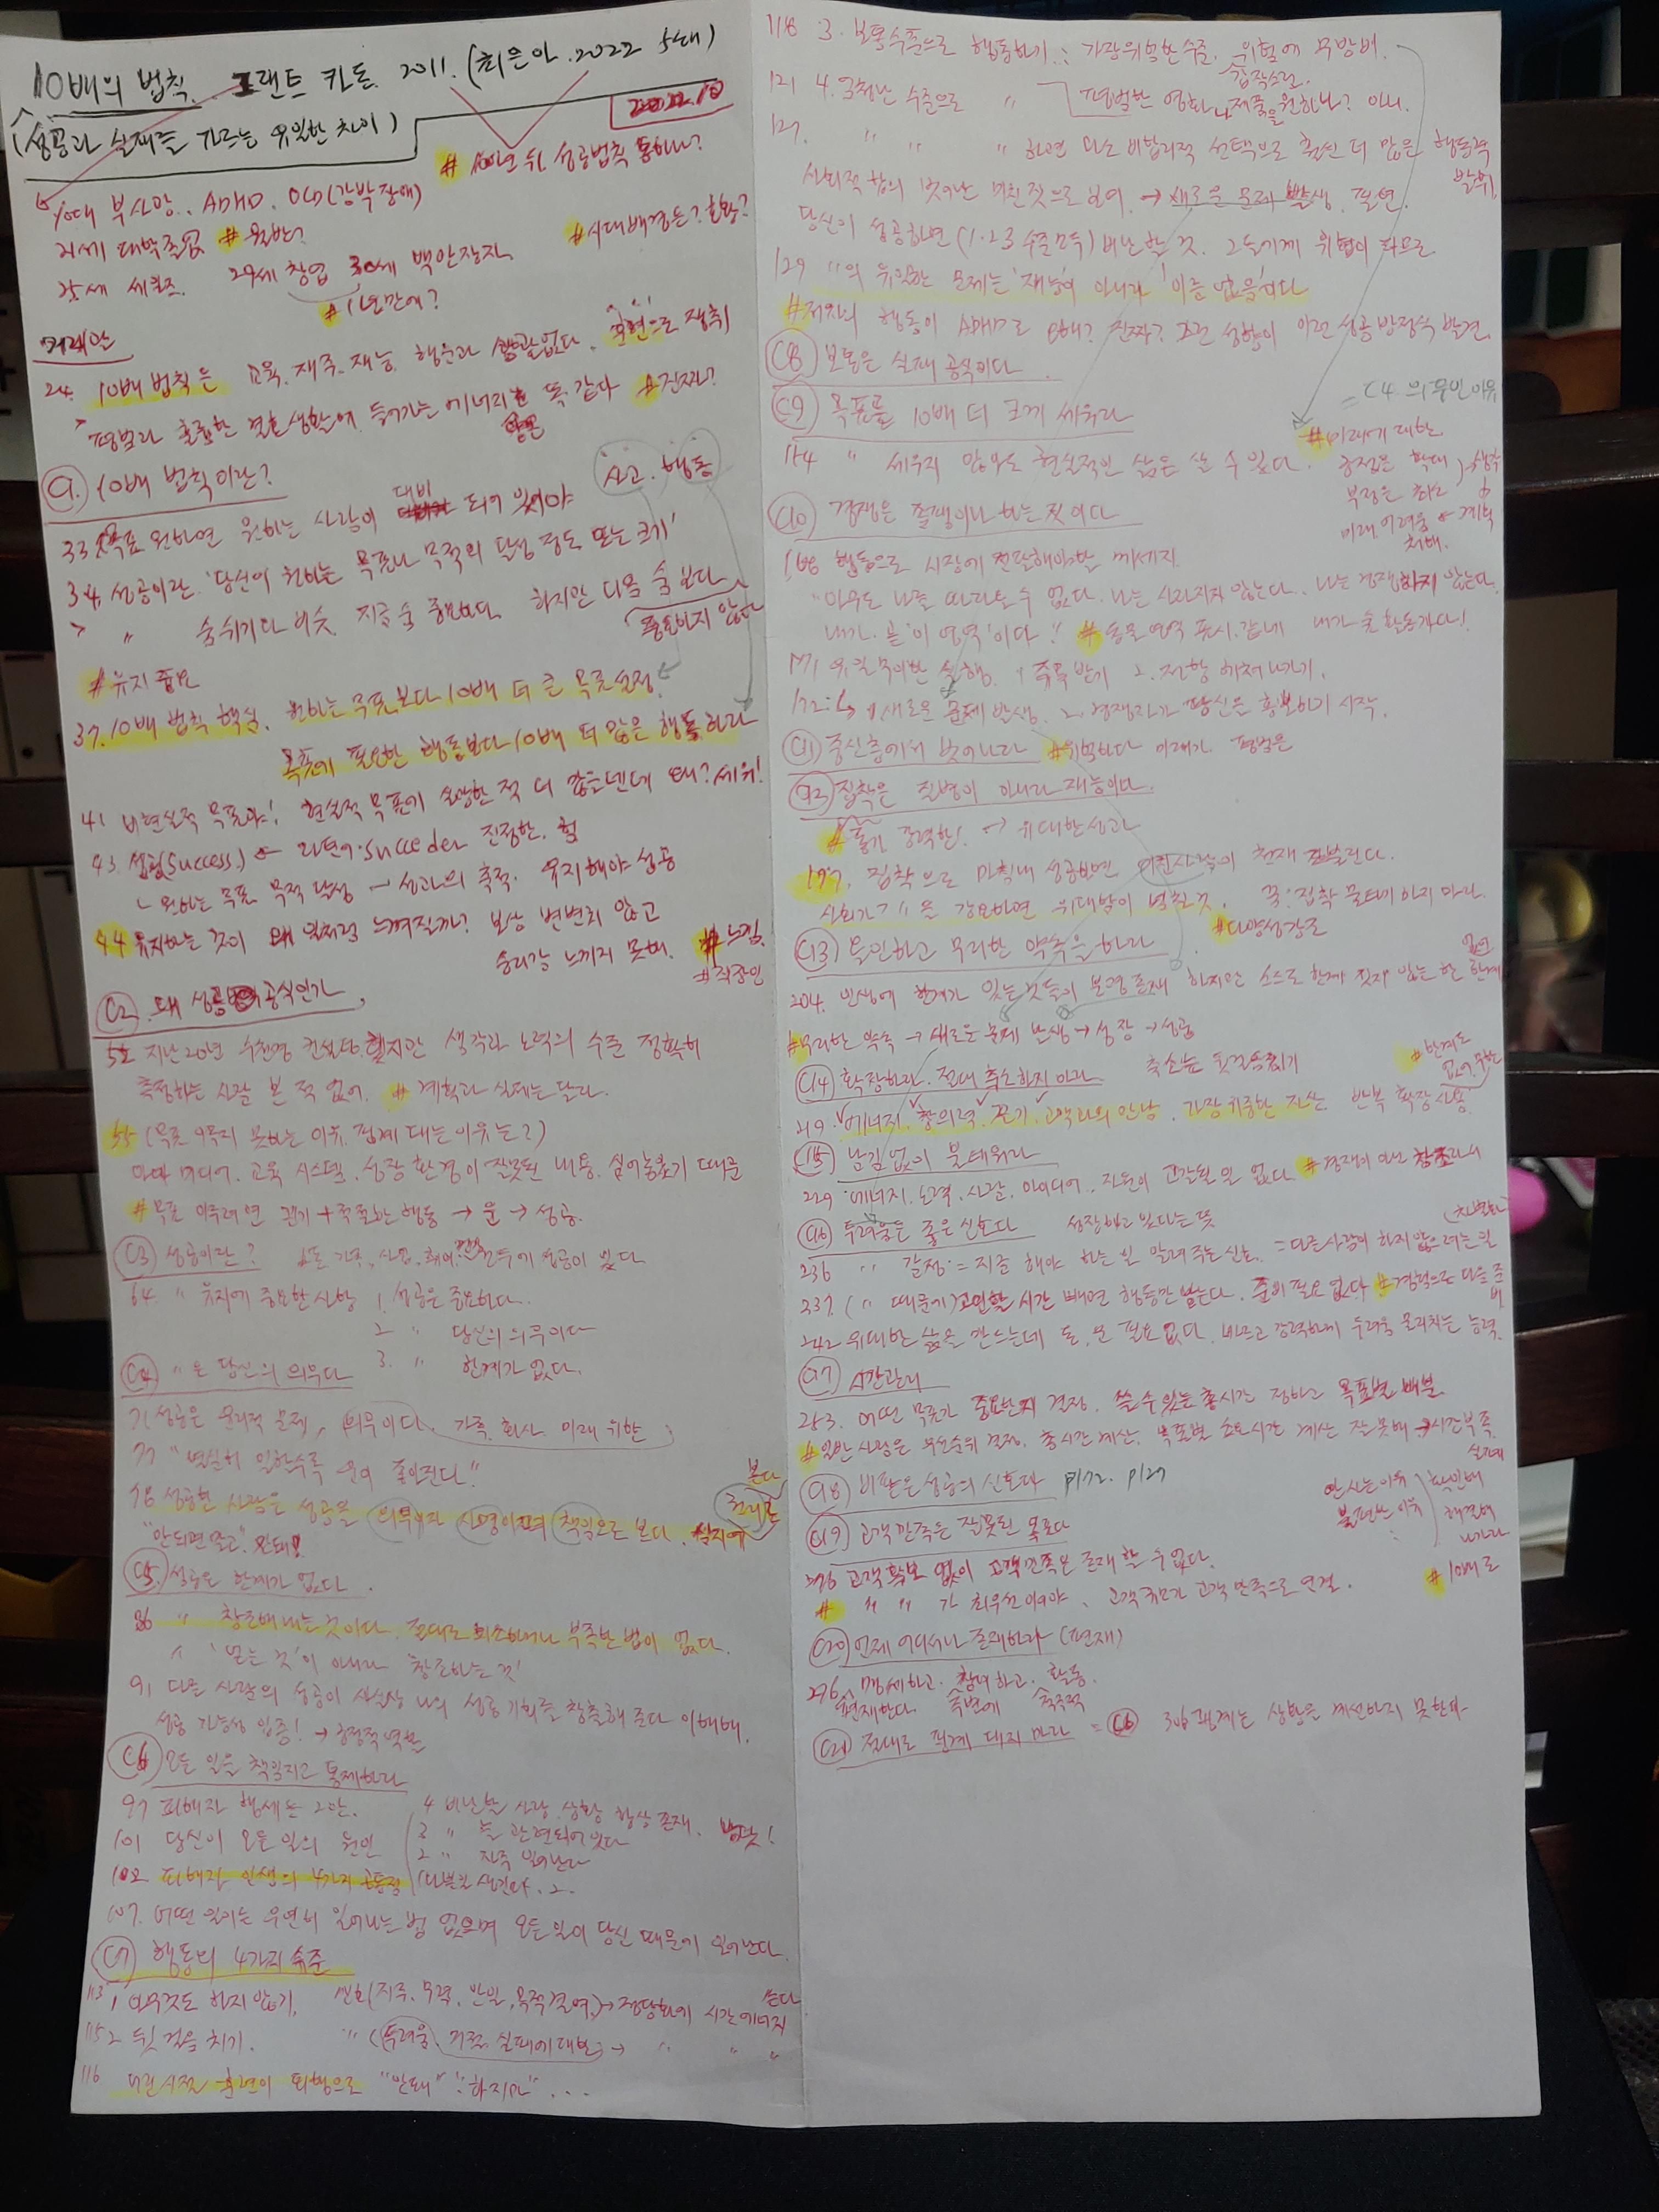 10배의 법칙. 그랜트 카돈. 2011. (최은아. 2022 5쇄)
(성공과 실패를 가르는 유일한 차이)
2022.10
# 100년 뒤 성공법칙 통하나?
부사망.. ADHD. OCD(강박장애)
21세 대학졸업 #일반?
25세 세일즈. 29세 창업 30세 백만장자.
#시대배경은? 호황?
#1년만에?
24. 10배 법칙은 교육. 재주. 재능. 행운과 상관없다.
> 평범과 훌륭한 결혼생활에 들어가는 에너지는 똑 같다 #진짜?
C1. 10배 법칙이란? 사고. 행동
33 목표 원하면 원하는 사람이 대비 되어 있어야
34. 성공이란. '당신이 원하는 목표나 목적의 달성 정도 또는 크기'
> " 숨쉬기와 비슷. 지금 숨 중요하다. 하지만 다음 숨 보다 중요하지 않다
#유지 중요
37. 10배 법칙 핵심. 원하는 목표보다 10배 더 큰 목표 설정.
목표에 필요한 행동보다 10배 더 많은 행동하라
41 비현실적 목표라! 현실적 목표에 실망한 적 더 많을텐데 왜? 세워!
43. 성공(Success) ← 라틴어.succeder 진정한. 힘
ㄴ 원하는 목표 목적 달성 → 성과의 축적. 유지해야 성공
44 유지하는 것이 왜 일처럼 느껴질까? 보상 변변치 않고
승리감 느끼지 못해. #느낌.
#직장인
C2. 왜 성공의 공식인가
52 지난 20년 수천명 컨설팅 했지만 생각과 노력의 수준 정확히
측정하는 사람 본 적 없어. # 계획과 실제는 달라.
55 (목표 이루지 못하는 이유. 핑계 대는 이유는?)
미디어. 교육 시스템. 성장 환경이 잘못된 내용. 심어놓았기 때문
#목표 이루려면 크기 + 적절한 행동 → 운 → 성공.
C3 성공이란? 모든 가족, 사업, 회사 모두에 성공이 있다
64 " 유지에 중요한 사항 1. 성공은 중요하다.
2 " 당신의 의무이다
3. " 한계가 없다.
C4 " 은 당신의 의무다
71 성공은 윤리적 문제, 의무이다. 가족. 회사 미래 위한
77 "열심히 일할수록 운이 좋아진다."
78 성공한 사람은 성공을 의무이자 사명이자 책임으로 본다. 심지어 권리로 본다
"안되면 말고". 안돼!
C5. 성공은 한계가 없다.
86 " 창조해내는 것이다. 절대로 부족한 법이 없다.
'얻는 것'이 아니라 '창조하는 것'
91 다른 사람의 성공이 사실상 나의 성공 기회를 창출해 준다 이해해.
성공 가능성 입증! → 긍정적 역할
C6 모든 일을 책임지고 통제하라
97 피해자 행세는 그만. 4 비난할 사람. 상황 항상 존재.
101 당신이 모든 일의 원인 3 " 늘 관련되어 있다
2 " 자주 일어난다
102 피해자 인생의 4가지 공통점 1 나쁜일 생긴다.
107. 어떤 일이든 우연히 일어나는 법 없으며 모든 일이 당신 때문에 일어난다.
C7 행동의 4가지 수준
113 1 아무것도 하지 않기. 변화(지루, 무력, 안일, 목적결여) → 정당화에 시간에너지 쓴다
115 2 뒷걸음 치기. " (두려움. 거절. 실패에 대한) → " " "
116 어린시절 훈련이 퇴행으로 "안돼" "하지마" . . .
118 3. 보통수준으로 행동하기 : 가장위험한 수준. 위험에 무방비. 갑작스런.
121 4. 굉장난 수준으로 " 평범한 영화나 제품을 원하나? 아니.
127. " " " 하면 다소 비합리적 선택으로 훨씬 더 많은 행동력 발휘
사회적 합의 벗어난 미친짓으로 보여. → 새로운 문제 발생. 필연.
당신이 성공하면 (1.2.3 수준 모두) 비난할 것. 그들에게 위협이 되므로
129 "의 유일한 문제는 '재능'이 아니라 '이름 없음'이다
#저자의 행동이 ADHD로 인해? 진짜? 그런 성향이 이런 성공방정식 발견.
C8 보통은 실패 공식이다
C9 목표를 10배 더 크게 세워라
154 " 세우지 않아도 현실적인 삶은 살 수 있다.
= C4 의무인 이유
#미래에 대한
긍정은 확대
부정은 최소
생각
미래 어려움 ← 계획
C10 경쟁은 쫄쟁이나 하는 짓이다
168 행동으로 시장에 전달해야할 메세지.
"아무도 나를 따라올 수 없다. 나는 사라지지 않는다.. 나는 경쟁하지 않는다.
내가. 곧 '이 영역'이다!! #동물 영역 표시. 같네 내가 곧 활동가다!
171 유일무이한 실행. 1 주목 받기 2. 저항 헤쳐 나가기.
172 : ↳ 1 새로운 문제 발생. 2. 경쟁자가 당신을 홍보하기 시작.
C11 중산층에서 벗어나라 #위험하다 미래가. 평범은
C12 집착은 질병이 아니라 재능이다.
#동기 강력한! → 위대한성과
197. 집착으로 마침내 성공하면 미친사람이 천재 불린다.
사회가 " 을 강요하면 위대함이 멈출것. 꼭 : 집착 물타기 하지 마라.
#다양성강조
C13 올인하고 무리한 약속을 하라
204. 인생에 한계가 있는 것들이 분명 존재 하지만 스스로 한계 짓지 않는 한 한계 없다
#무리한 약속 → 새로운 문제 발생 → 성장 → 성공
C14 확장하라. 절대 축소하지 마라 축소는 뒷걸음질치기
#한계는 없어. 무한
219. 에너지. 창의력. 끈기. 고객과의 만남. 가장 귀중한 자산 반복 확장 사용.
C15 남김 없이 불태워라
229. 에너지. 노력. 사람. 아이디어.. 자원이 고갈될 일 없다 #경쟁이 아닌 창조라서
C16 두려움은 좋은 신호다 성장하고 있다는 뜻
236 " 감정 = 지금 해야 하는 일 알려주는 신호. = 다른사람이 하지않으려는 일
237 (" 때문에) 고민할 시간 빼면 행동만 남는다. 준비 필요 없다 #경험으로 다음 준비
242 위대한 삶을 만드는데 돈, 운 필요 없다. 빠르고 강력하게 두려움 물리치는 능력.
C17 시간관리
253. 어떤 목표가 중요한지 결정. 쓸 수 있는 총시간 정하고 목표별 배분.
#일반 사람은 우선순위 결정. 총시간 계산. 목표별 소요시간 계산 잘못해 → 시간부족.
C18 비판은 성공의 신호다 p172. p127
안사는이유
불편한 이유
확인해
해결해
나가라
C19 고객만족은 잘못된 목표다
276 고객 확보 없이 고객만족은 존재 할 수 없다.
# " " 가 최우선 이어야. 고객 확보가 고객 만족으로 연결.
#10배로
C20 언제 어디서나 존재하라 (편재)
296 맹세하고. 참여하고. 활동.
편재한다. 주변에 적극적
C21 절대로 핑계 대지 마라 = C6 306 핑계는 상황을 개선하지 못한다